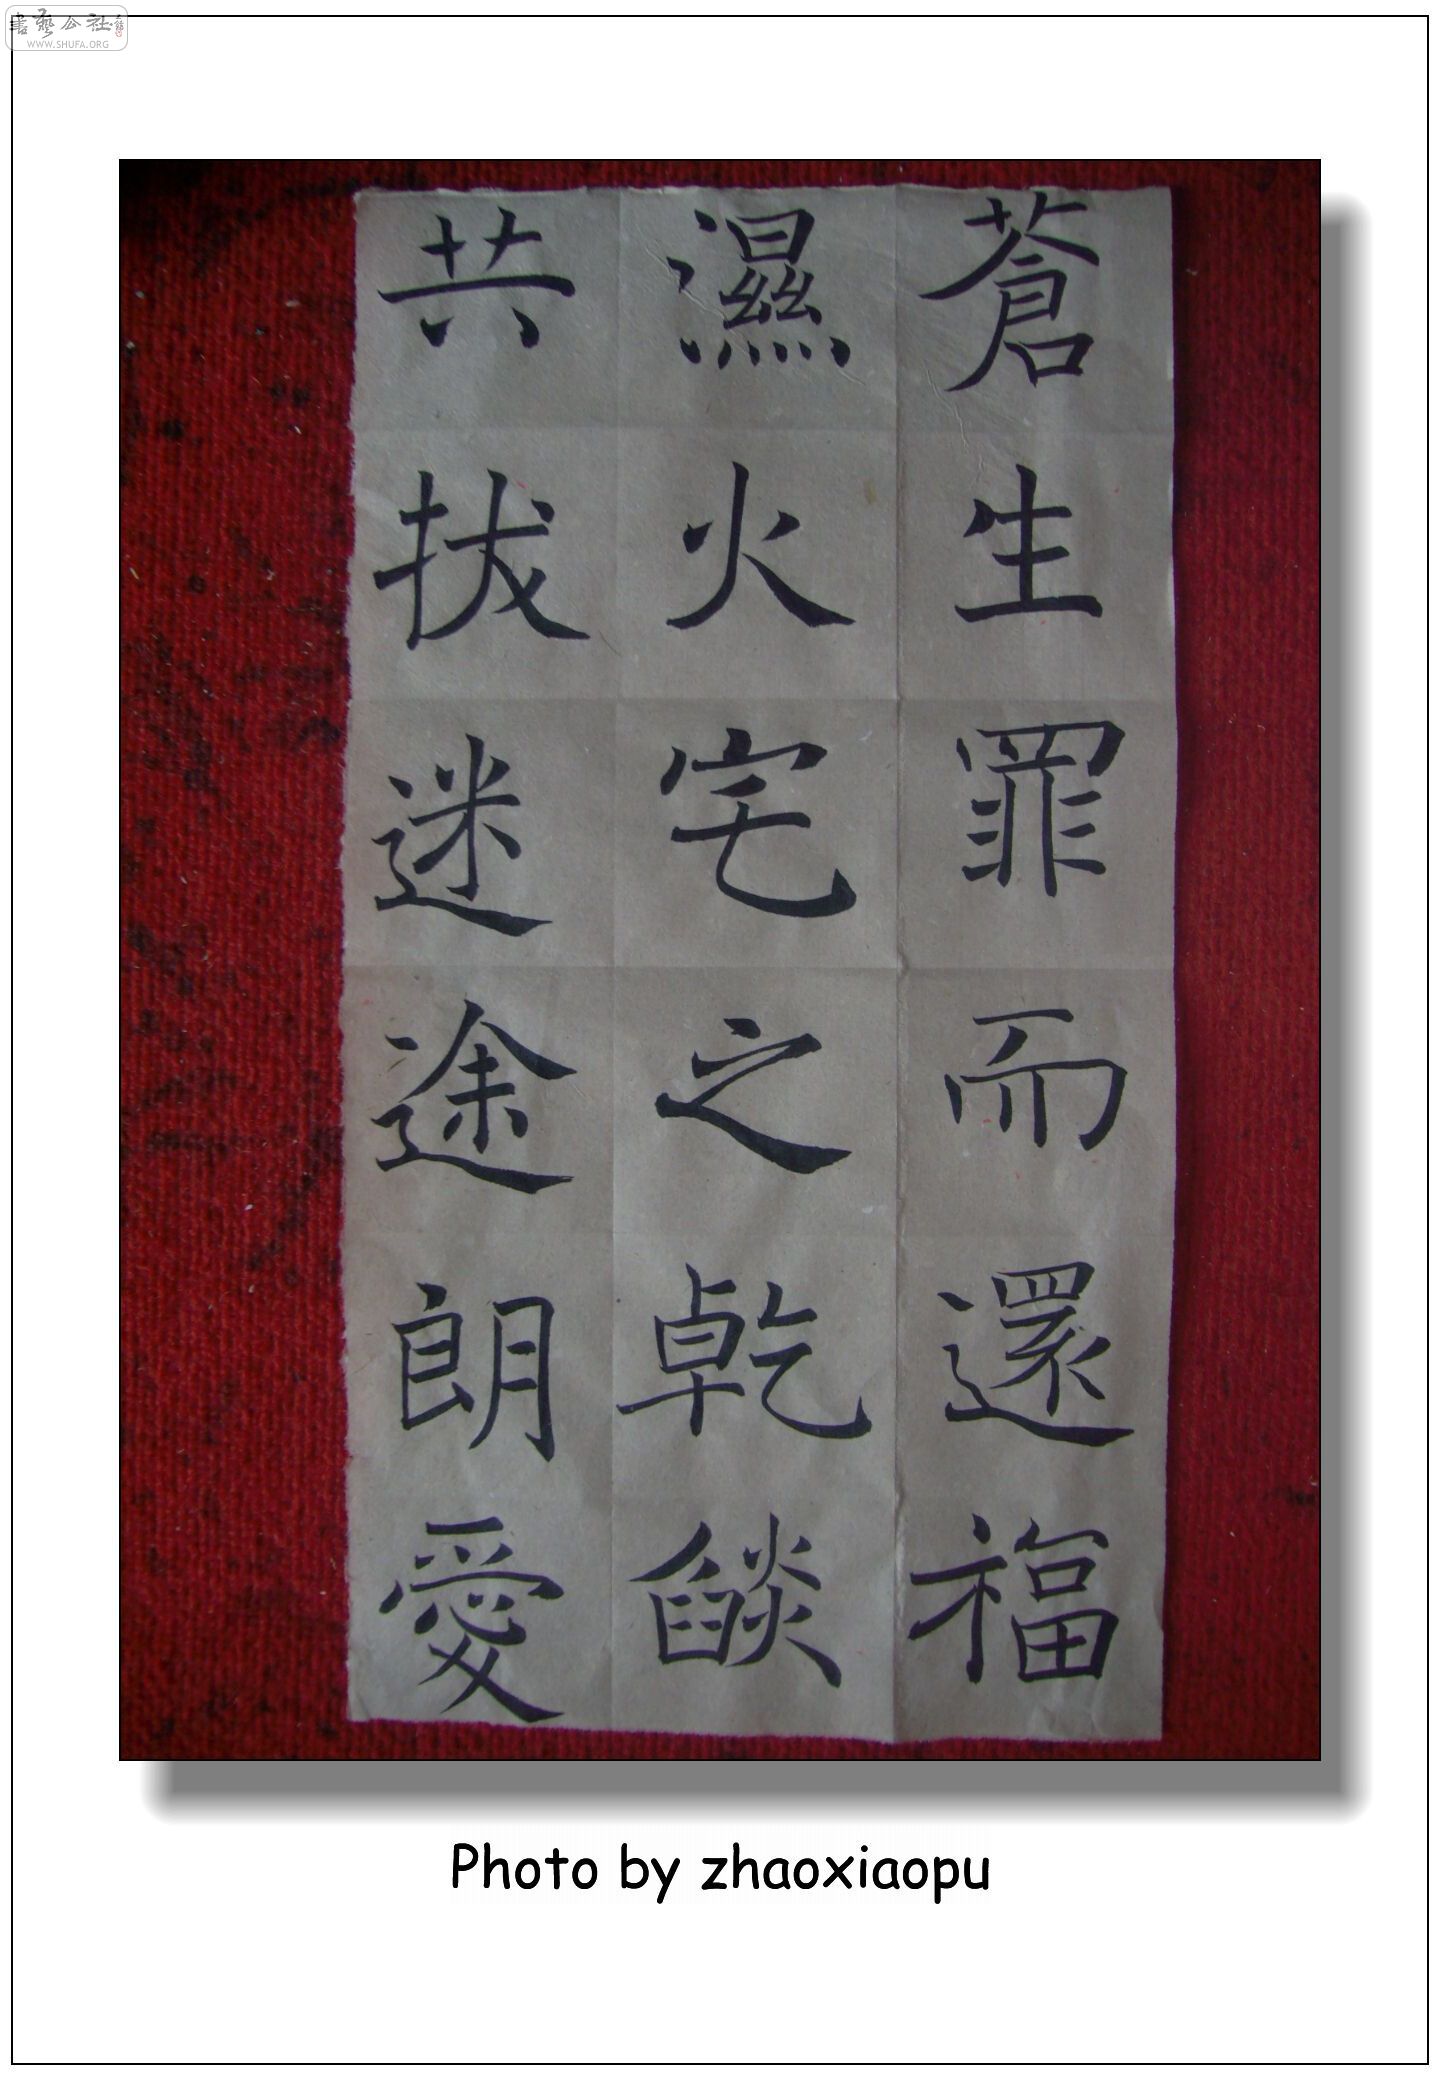 書藝公社
WWW.SHUFA.ORG
蒼生罪而還福
濕火宅之乾燄
共拔迷途朗愛
Photo by zhaoxiaopu